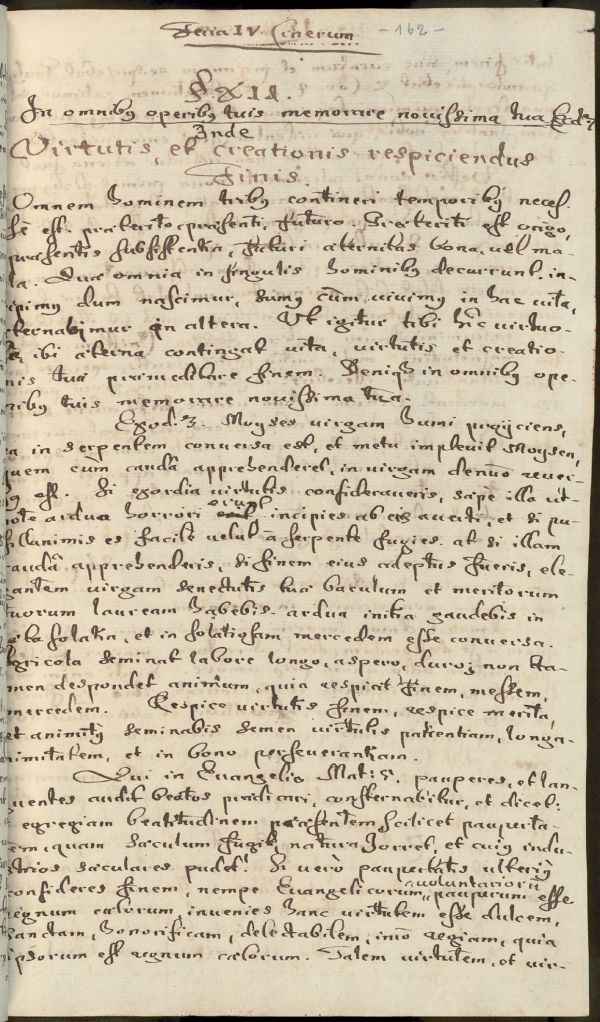 Feria IV Cinerum - 162 -
§. XII.
In omnibꝫ operibꝫ tuis memorare novissima tua
Inde
Virtutis, et creationis respiciendus
Finis.
Omnem hominem tribꝫ contineri temporibꝫ neces-
se est. praeterito, praesenti, futuro. Praeteriti est origo,
praesentis subsistentia, futuri aeternitas bona, vel ma-
la. Quae omnia in singulis hominibꝫ decurrunt. in-
cipimꝫ dum nascimur, sumꝫ cùm vivimꝫ in hac vita,
aeternabimur in altera. Ut igitur tibi hîc virtuo-
ibi aeterna contingat vita, virtutis et creatio-
nis tuae praemeditare finem. Deniqꝫ in omnibꝫ ope-
ribꝫ tuis memorare novissima tua.
Exod: 3. Moyses virgam humi projiciens,
in serpentem conversa est, et metu implevit Moysen,
quem cùm caudâ apprehenderet, in virgam denuò rever-
est. Si exordia virtutis consideraveris, saepe illa ut-
pote ardua horrori erunt, incipies ab eis averti, et si pu-
sillanimis es facilè velut à serpente fugies. at si illam
caudâ apprehenderis, si finem eius adeptus fueris, ele-
gantem virgam senectutis tuae baculum et meritorum
tuorum lauream habebis. ardua initia gaudebis in
solatia, et in solatiosam mercedem esse conversa.
Agricola seminat labore longo, aspero, duroqꝫ non ta-
men despondet animum, quia respicit finem, messem,
mercedem. Respice virtutis finem, respice merita,
et seminabis semen virtutis patientiam, longa-
nimitatem, et in bono perseverantiam.
Qui in Evangelio Mat: 5. pauperes, et lan-
guentes audit beatos praedicari, consternabitur, et dicet:
egregiam beatitudinem praesentem scilicet pauperta-
tem, quam saeculum fugit, natura horret, et cuiꝫ indu-
strios saeculares pudet! Si verò paupertatis ulteriꝫ
consideres finem, nempe Evangelicorum voluntariorum pauperum esse
regnum caelorum, invenies hanc virtutem esse dulcem,
sanctam, honorificam, delectabilem, imò regiam, quia
ipsorum est regnum caelorum. Talem virtutem, et vir-